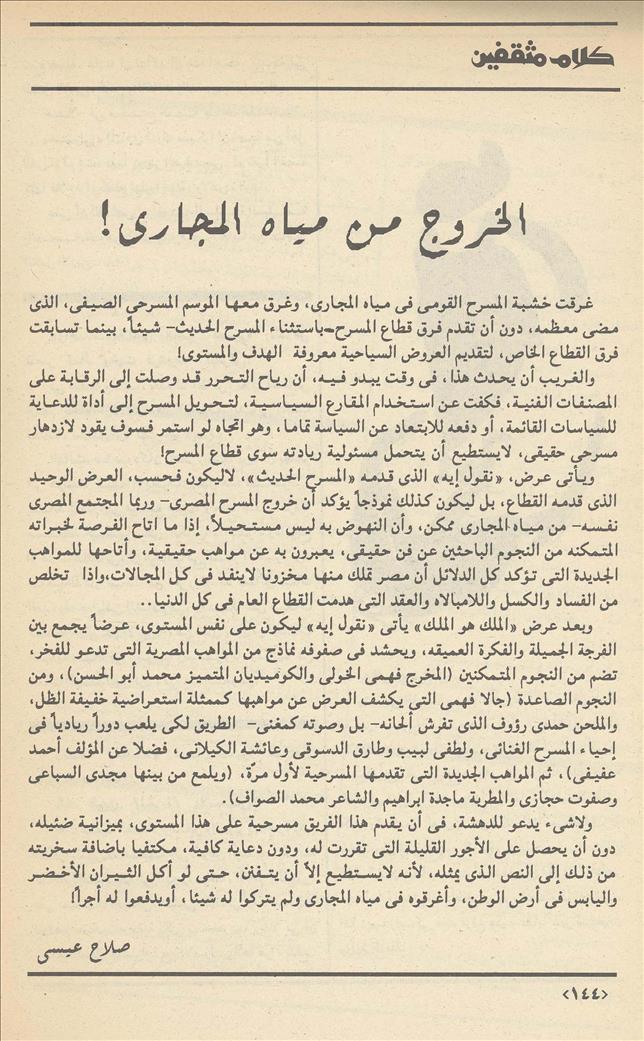 كلام مثقفين
الخروج من مياه المجارى!
غرقت خشبة المسرح القومى فى مياه المجارى، وغرق معها الموسم المسرحى الصيفى، الذى
مضى معظمه، دون أن تقدم فرق قطاع المسرح -باستثناء المسرح الحديث- شيئاً، بينما تسابقت
فرق القطاع الخاص، لتقديم العروض السياحية معروفة الهدف والمستوى!
والغريب أن يحدث هذا، فى وقت يبدو فيه، أن رياح التحرر قد وصلت إلى الرقابة على
المصنفات الفنية، فكفت عن استخدام المقارع السياسية، لتحويل المسرح إلى أداة للدعاية
للسياسات القائمة، أو دفعه للابتعاد عن السياسة تماما، وهو اتجاه لو استمر فسوف يقود لازدهار
مسرحى حقيقى، لايستطيع أن يتحمل مسئولية ريادته سوى قطاع المسرح!
ويأتى عرض، «نقول إيه» الذى قدمه «المسرح الحديث»، لاليكون فحسب، العرض الوحيد
الذى قدمه القطاع، بل ليكون كذلك نموذجاً يؤكد أن خروج المسرح المصرى- وربما المجتمع المصرى
نفسه- من مياه المجارى ممكن، وأن النهوض به ليس مستحيلاً، إذا ما اتاح الفرصة لخبراته
المتمكنه من النجوم الباحثين عن فن حقيقى، يعبرون به عن مواهب حقيقية، وأتاحها للمواهب
الجديدة التى تؤكد كل الدلائل أن مصر تملك منها مخزونا لاينفد فى كل المجالات،واذا تخلص
من الفساد والكسل واللامبالاه والعقد التى هدمت القطاع العام فى كل الدنيا..
وبعد عرض «الملك هو الملك» يأتى «نقول إيه» ليكون على نفس المستوى، عرضاً يجمع بين
الفرجة الجميلة والفكرة العميقه، ويحشد فى صفوفه نماذج من المواهب المصرية التى تدعو للفخر،
تضم من النجوم المتمكنين (المخرج فهمى الخولى والكوميديان المتميز محمد أبو الحسن)، ومن
النجوم الصاعدة (جالا فهمى التى يكشف العرض عن مواهبها كممثلة استعراضية خفيفة الظل،
والملحن حمدى رؤوف الذى تفرش ألحانه- بل وصوته كمغنى- الطريق لكى يلعب دوراً ريادياً فى
إحياء المسرح الغنائى، ولطفى لبيب وطارق الدسوقى وعائشة الكيلانى، فضلا عن المؤلف أحمد
عفيفى)، ثم المواهب الجديدة التى تقدمها المسرحية لأول مرّة، (ويلمع من بينها مجدى السباعى
وصفوت حجازى والمطربة ماجدة ابراهيم والشاعر محمد الصواف).
ولاشىء يدعو للدهشة، فى أن يقدم هذا الفريق مسرحية على هذا المستوى، بميزانية ضئيله،
دون أن يحصل على الأجور القليلة التى تقررت له، ودون دعاية كافية، مكتفيا باضافة سخريته
من ذلك إلى النص الذى يمثله، لأنه لايستطيع إلاّ أن يتفنن، حتى لو أكل الثيران الأخضر
واليابس فى أرض الوطن، وأغرقوه فى مياه المجارى ولم يتركوا له شيئا، أويدفعوا له أجراً!
صلاح عيسى
<١٤٤>